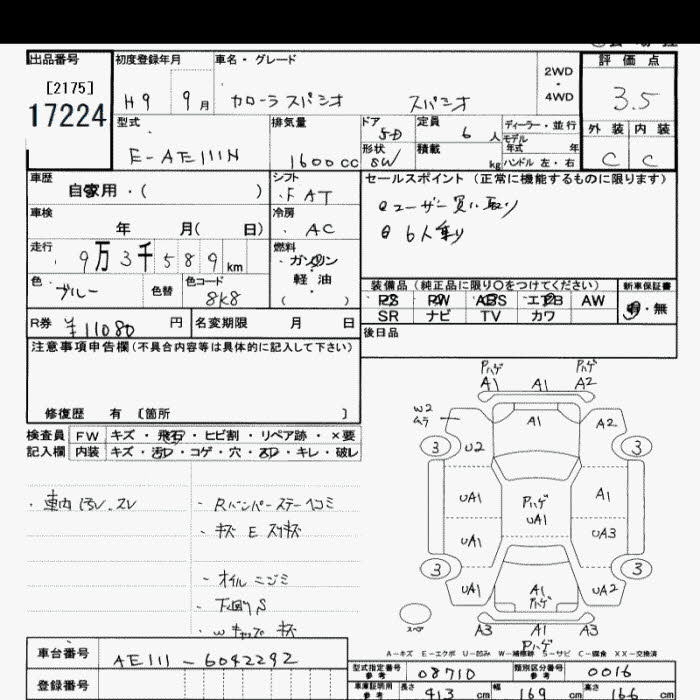 出品番号
[2175]
17224
初度登録年月
H9 9月
車名・グレード
カローラスパシオ スパシオ
2WD
・
4WD
評価点
3.5
外装 内装
C C
型式
E-AE111N
排気量
1600cc
ドア
5D
形状
SW
定員
6人
積載
kg
ディーラー・並行
モデル
年式 年
ハンドル 左・右
車歴
自家用・( )
シフト
FAT
車検
年 月( 日)
冷房
AC
走行
9万3千589km
燃料
ガソリン
・
軽油
( )
色
ブルー
色替
色コード
8K8
セールスポイント(正常に機能するものに限ります)
ユーザー買い取り
6人乗り
装備品(純正品に限り○をつけてください)
PS PW ABS エアB AW
SR ナビ TV カワ
新車保証書
有・無
R券 ¥11080円
名変期限 月 日
後日品
注意事項申告欄(不具合内容等は具体的に記入して下さい)
修復歴 有 〔箇所 〕
検査員
記入欄
FW キズ・飛石・ヒビ割・リペア跡・×要
内装 キズ・汚れ・コゲ・穴・スレ・キレ・破レ
・車内汚レ.スレ
・Rバンパーステーヘコミ
・キズ E スリキズ
・オイルニジミ
・下廻りS
・Wキャップ キズ
Pハゲ Pハゲ
A1 A1 A2
W2
ムラ
A1
A2
3 U2 3
UA1 Pハゲ A1
UA1
UA1 UA3
3 3
UA1 A1 UA2
Pハゲ
スペア
A3 A1 A3
Pハゲ
A-キズ E-エクボ U-凹み W-補修跡 S-サビ C-腐食 XX-交換済
車台番号
AE111-6042292
登録番号
型式指定番号
参考
08710
類別区分番号
参考
0016
車庫証明用
参考
長さ 413cm 幅 169cm 高さ 166cm